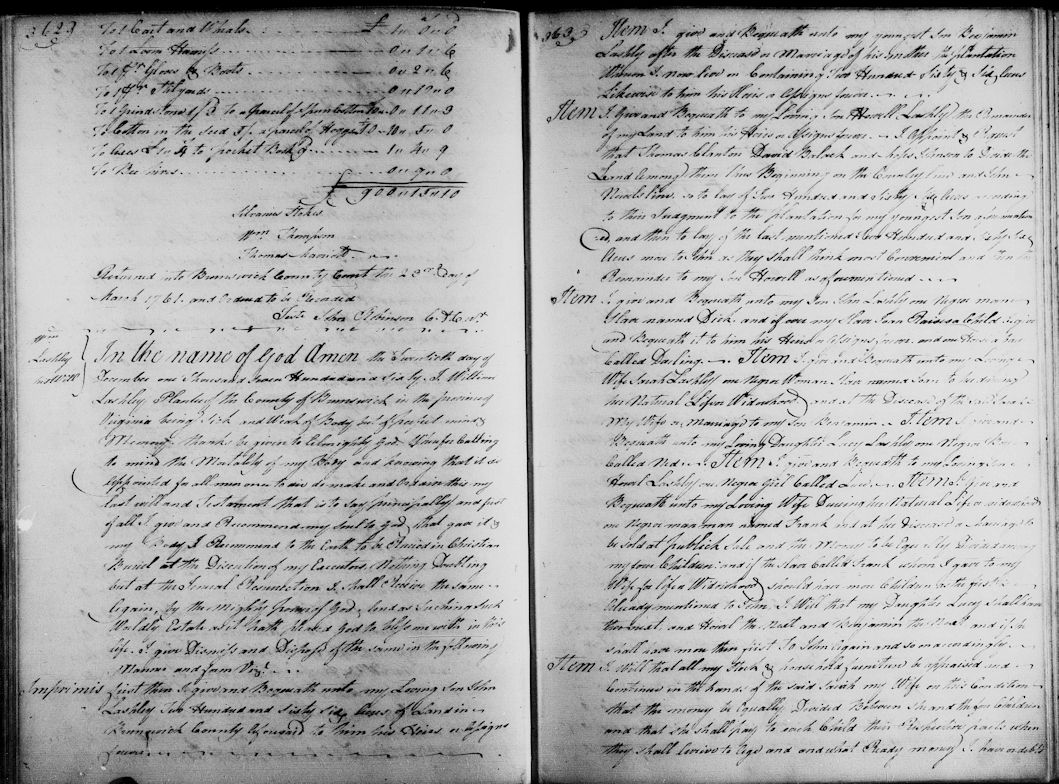 362
To 1 Cart and Whels £1 " 0 " 0
To 1 Loom Harniss 0 " 1 " 6
To 1 pr Gloves & Boots 0 " 2 " 6
To 1 Stilyards 0 " 10 " 0
To 1 Grind Stone 1/3 To a Parcel of Spun Cotton 0 " 11 " 3
To Cotton in the seed 5/. a parcel of Hoggs
To pocket Book 1 " 4 " 9
To Bee hives 0 " 9 " 0
£ 90 " 15 " 10
Silvanus Stokes
Wm Thompson
Thomas
Returned into Brunswick County Court the 23rd Day of
March 1761. and Ordered to be Recorded
Teste John Robinson C. B. C. Ct
Wm
Lashly
his Will
In the name of God Amen the Twentieth day of
December one Thousand Seven Hundred and Sixty. I William
Lashley Planter of the County of Brunswick in the province
Virginia being Sick and Weak of Body but of perfect mind &
Memory thanks be given to Almighty God. Therefore Calling
to mind the Mortality of my Body and knowing that it is
Appointed for all men once to die do make and Ordain this my
last will and Testament that is to say principally and first
of all I give and Recommend my Soul to God that gave it &
my Body I Recommend to the Earth to be Buried in Christian
Burial at the Discretion of my Executors Nothing Doubting
but at the General Resurrection I Shall Receive the same
Again, by the Mighty power of God. And as Touching such
Worldly Estate as it hath pleased God to bless me with in this
life. I give Dismiss and Dispose of the same in the following
Manner and form
Imprimis first then I give and Bequeath unto my Loving Son John
Lashley Two Hundred and Sixty Six Acres of Land in
Brunswick County to him his Heirs or Assigns
forever
363
Item I give and Bequeath unto my youngest Son Benjamin
Lashly after the Disease or Marriage of his mother the plantation
Whereon I now live on Containing Two Hundred Sixty & Six Acres
Likewise to him his Heirs or Assigns forever
Item I Give and Bequeath to my Loving Son Howell Lashly the Remainder
of my Land to him his Heirs or Assigns forever. I Appoint & Request
that Thomas Clanton David and Johnson to Devide the
Land Among them thus Beginning on the County line and John
Nevils line, so to lay of Two Hundred and Sixty Six Acres
to their Judgment to the plantation for my youngest Son aforemention
ed, and then to lay of the last mentioned Two Hundred and Sixty Six
Acres more to John as they shall think most Convenient and then the
Remainder to my Son Howell as aforementioned
Item I give and Bequeath unto my Son John Lashly one Negroe man
Slave named Dick. and if ever my Slave Joan Raises a Child I give
and Bequeath it to him his Heirs or Assigns forever, and one Horse
Called Darling. Item I Give and Bequeath unto my Loving
Wife Sarah Lashly one Negroe Woman Slave named Joan to her during
her Natural Life or Widowhood and at the Disease of the
My Wife or Marriage to my Son Benjamin. Item I give and
Bequeath unto my Loving Daughter Lucy Lashly one Negroe Boy
Called Ned. Item I give and Bequeath to my Loving Son
Howel Lashly one Negroe Girl Called Item I give and
Bequeath unto my Loving Wife During her Natural Life or widowhood
one Negroe man named Frank and at the Disease or Marriage to
be Sold at publick Sale and the Money to be Equally Divided among
my four Children. and if the Slave Called Joan whom I gave to my
Wife for life or Widowhood should have more Children as the first
Already mentioned to John, I Will that my Daughter Lucy Shall have
the next. and Howel the Next and Benjamin the Next and if she
shall have more then first To John Again and so on accordingly
Item I will that all my Stock & household furniture be appraised and
Continue in the hands of the said Sarah my Wife on this Condition
that the money be Equally Divided Between her and the four Children
and that she shall pay to each Child their Respective parts when
they shall Arrive to Age and and what Ready money I have